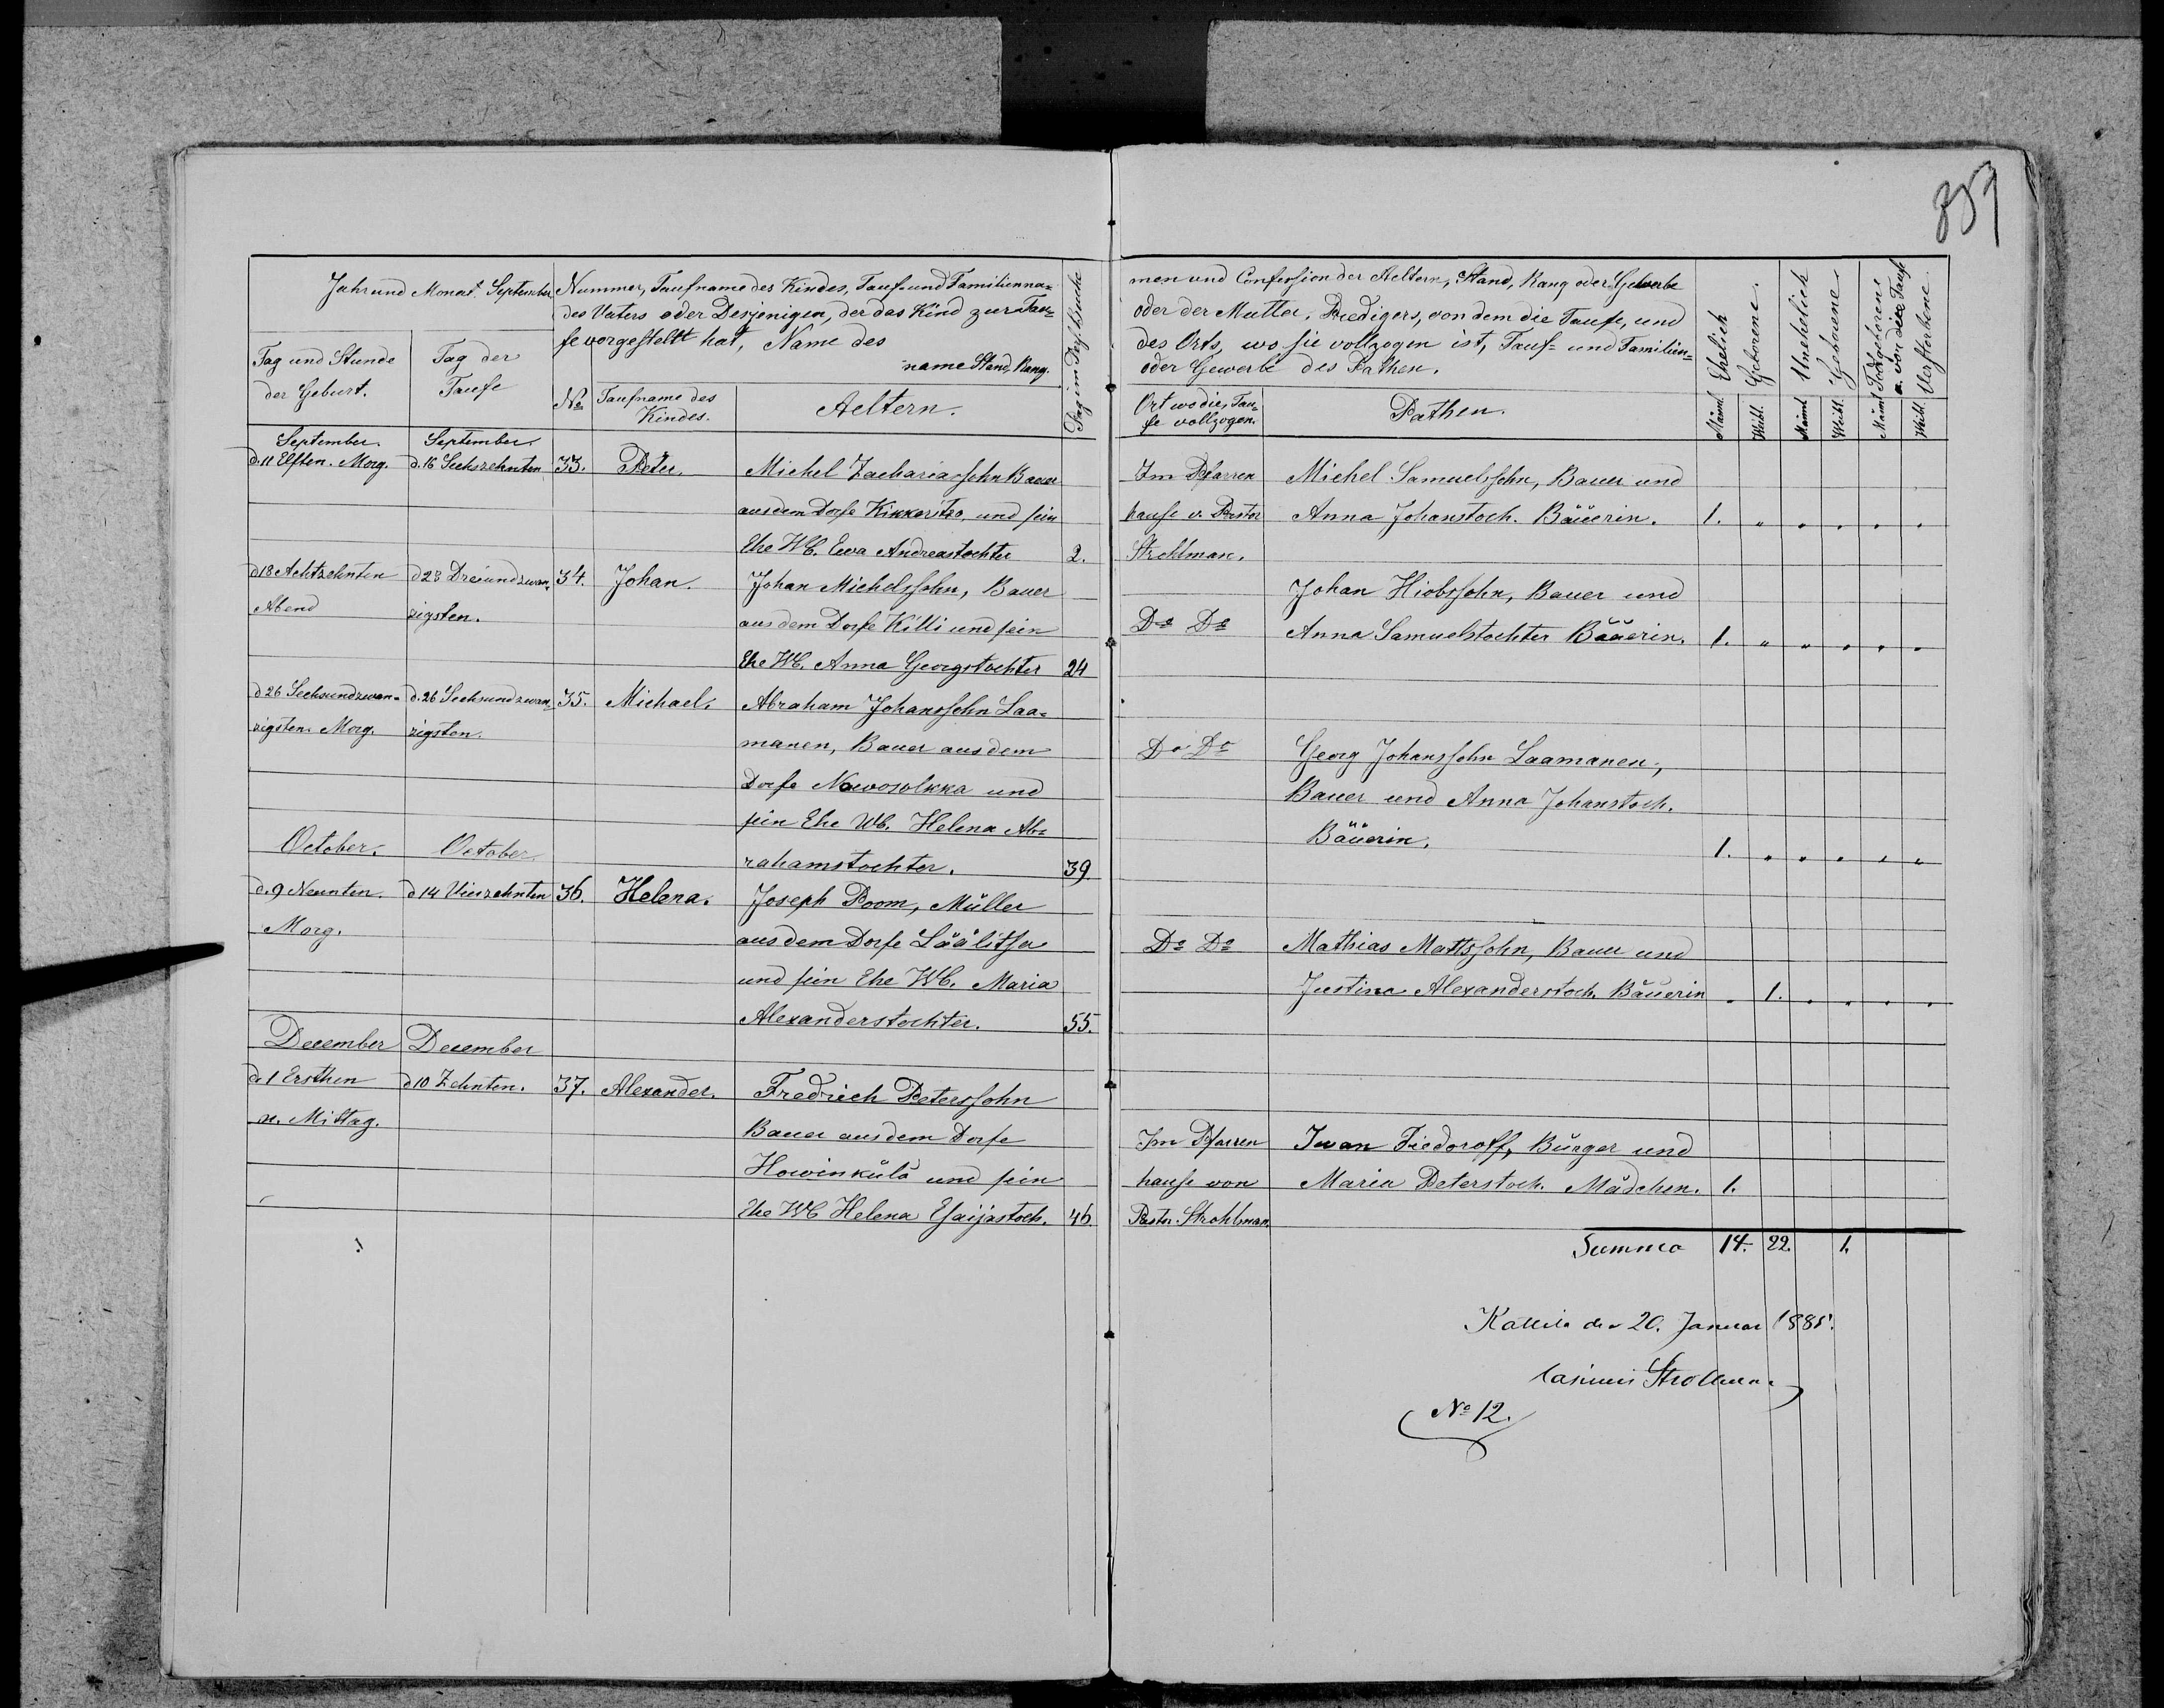 359
Jahr und Monat. September
Nummer, Taufname des Kindes, Tauf- und Familienna=
des Vaters oder Desjenigen, der das Kind zur Tau=
fe vorgestellt hat, Name des
name Stand, Rang.
Tag und Stunde
der Geburt.
Tag der
Taufe
No
Taufname des
Kindes.
Aeltern.
September.
September.
d. 11 Elften. Morg.
d. 16 Sechszehnten
33.
Peter.
Michel Zachariassohn Bauer
aus dem Dorfe Kikkeritso, und sein
Ehe Wb. Ewa Andreastochter
2.
d 18 Achtzehnten
Abend
d 23 Dreiundzwan=
zigsten.
34.
Johan.
Johan Michelssohn, Bauer
aus dem Dorfe Killi und sein
Ehe Wb. Anna Georgstochter
24
d 26 Sechsundzwan=
zigsten. Morg.
d. 26 Sechsundzwan=
zigsten.
35.
Michael.
Abraham Johanssohn Laa=
manen, Bauer aus dem
Dorfe Nowosolkka und
sein Ehe Wb. Helena Ab=
rahamstochter.
39.
October.
October.
d. 9 Neunten.
Morg.
d 14 Vierzehnten
36.
Helena.
Joseph Poom, Müller
aus dem Dorfe Läälitsa
und sein Ehe Wb. Maria
Alexanderstochter.
55.
December
December
d. 1 Ersthen
n. Mittag.
d 10 Zehnten.
37.
Alexander.
Fredrich Peterssohn
Bauer aus dem Dorfe
Howinkülä und sein
Ehe Wb Helena Esaijastoch.
46
men und Confession der Aeltern, Stand, Rang oder Gewerbe
oder der Mutter. Predigers, von dem die Taufe, und
des Orts, wo sie vollzogen ist, Tauf- und Familien=
oder Gewerbe des Pathen.
Ort wo die Tau=
fe vollzogen.
Pathen.
Ehelich
Geborene.
Unehelich
Geborene.
Todtgeborene
u. vor der Taufe
Verstorbene.
Männl.
Weibl.
Männl.
Weibl.
Männl.
Weibl.
Im Pfarren
hause v. Pastor
Strohlman.
Michel Samuelssohn, Bauer und
Anna Johanstoch. Bäuerin.
1. " " " " "
Do Do
Johan Hiobssohn, Bauer und
Anna Samuelstochter Bäuerin.
1. " " " " "
Do Do
Georg Johanssohn Laamanen,
Bauer und Anna Johanstoch.
Bäuerin.
1. " " " " "
Do Do
Mathias Mattssohn, Bauer und
Justina Alexanderstoch. Bäuerin
" 1. " " " "
Im Pfarren
hause von
Pastor Strohlman.
Iwan Fiedoroff, Bürger und
Maria Peterstoch. Mädchen.
1.
Summa 14. 22. 1.
Kattila den 20. Januar 1881.
Casimir Strolman
No 12.